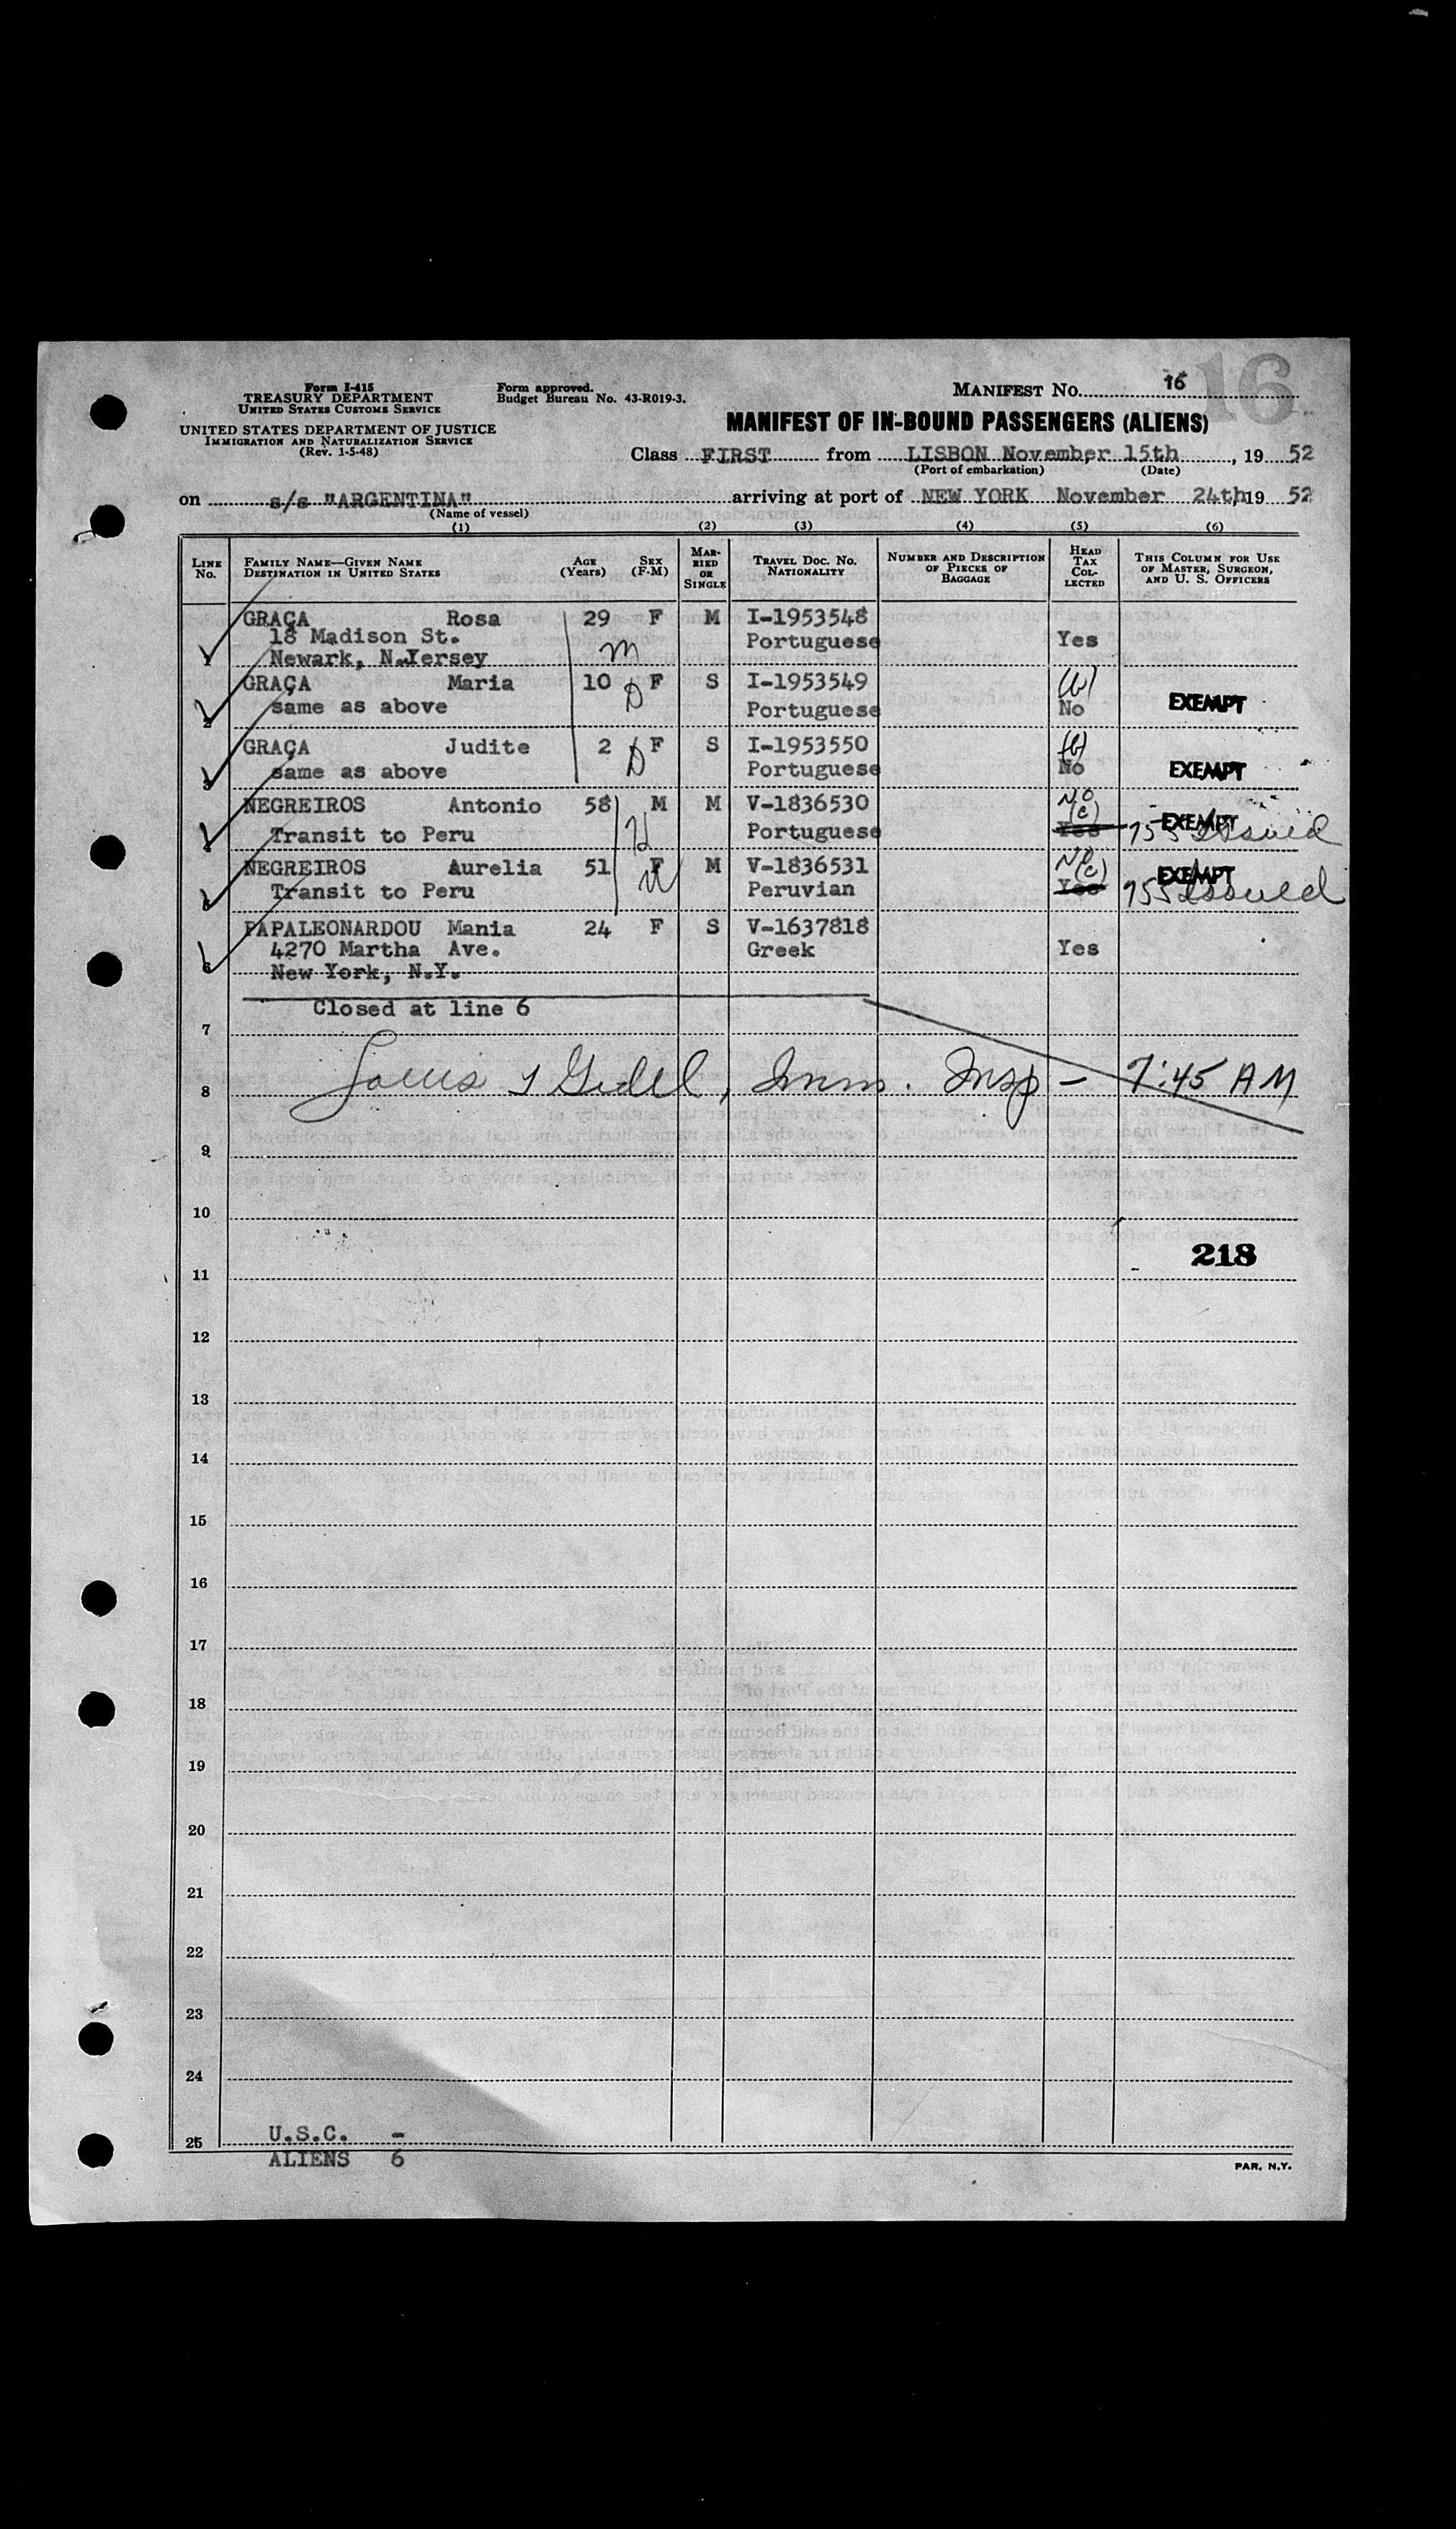 16
Form I-415
TREASURY DEPARTMENT
UNITED STATES CUSTOMS SERVICE
UNITED STATES DEPARTMENT OF JUSTICE
IMMIGRATION AND NATURALIZATION SERVICE
(Rev. 1-5-48)
Form approved.
Budget Bureau No. 43-R019-3.
MANIFEST No. 16
MANIFEST OF IN-BOUND PASSENGERS (ALIENS)
Class FIRST from LISBON November 15th, 19 52
(Port of embarkation) (Date)
on s/s "ARGENTINA" arriving at port of NEW YORK November 24th, 19 52
(Name of vessel)
(1) (2) (3) (4) (5) (6)
LINE No. FAMILY NAME—GIVEN NAME DESTINATION IN UNITED STATES AGE (Years) SEX (F-M) MARRIED OR SINGLE TRAVEL DOC. No. NATIONALITY NUMBER AND DESCRIPTION OF PIECES OF BAGGAGE HEAD TAX COLLECTED THIS COLUMN FOR USE OF MASTER, SURGEON, AND U. S. OFFICERS
GRAÇA Rosa 29 F M I-1953548
18 Madison St. Portuguese Yes
1 Newark, N.Yersey m
GRAÇA Maria 10 D F S I-1953549 (b)
2 same as above Portuguese No EXEMPT
GRAÇA Judite 2 D F S I-1953550 (b)
3 same as above Portuguese No EXEMPT
NEGREIROS Antonio 58 M M V-1836530 No (c)
Transit to Peru H Portuguese Yes EXEMPT 755 Issued
NEGREIROS Aurelia 51 F M V-1836531 No (c)
Transit to Peru W Peruvian Yes EXEMPT 755 Issued
PAPALEONARDOU Mania 24 F S V-1637818
4270 Martha Ave. Greek Yes
6 New York, N.Y.
Closed at line 6
7
8 Louis Imm. Insp - 7:45 AM
9
10
218
11
12
13
14
15
16
17
18
19
20
21
22
23
24
U.S.C. -
25
ALIENS 6
PAR, N.Y.